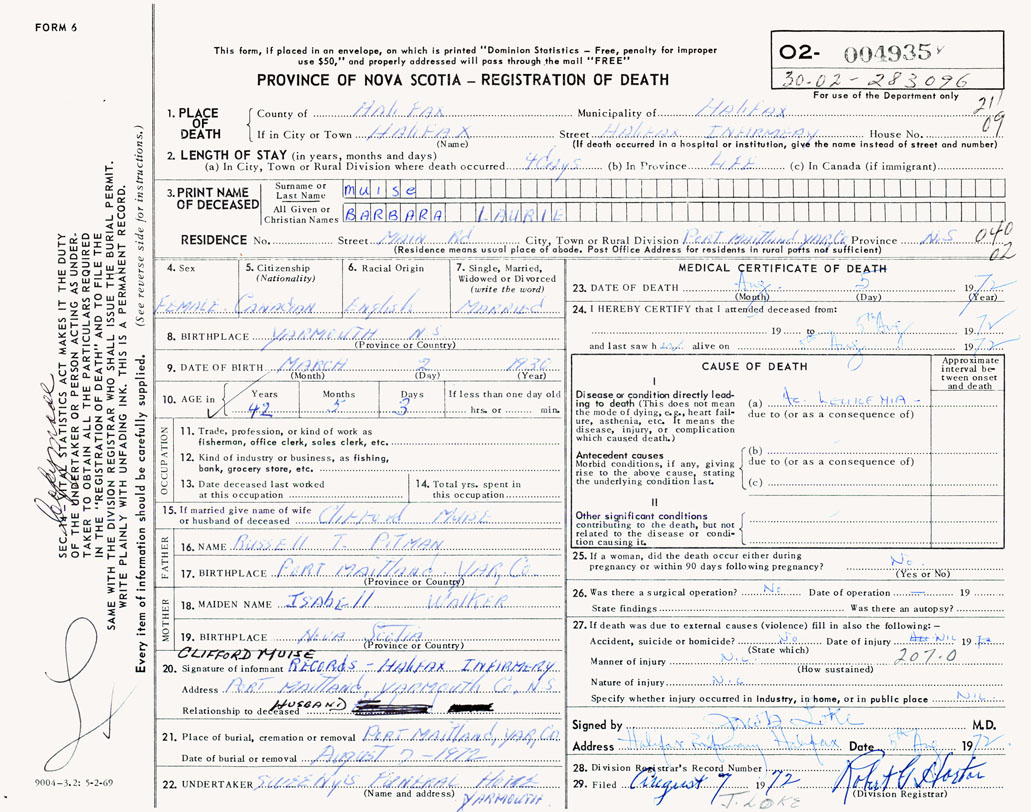 FORM 6
This form, if placed in an envelope, on which is printed "Dominion Statistics – Free, penalty for improper
use $50," and properly addressed will pass through the mail "FREE"
PROVINCE OF NOVA SCOTIA – REGISTRATION OF DEATH
02- 004935
30-02-283096
For use of the Department only
211
09
1. PLACE OF DEATH
County of Halifax Municipality of Halifax
If in City or Town Halifax Street Halifax Infirmery House No.
(Name) (If death occurred in a hospital or institution, give the name instead of street and number)
2. LENGTH OF STAY (in years, months and days)
(a) In City, Town or Rural Division where death occurred 4 days (b) In Province Life (c) In Canada (if immigrant)
3. PRINT NAME OF DECEASED
Surname or Last Name Muise
All Given or Christian Names BARBARA LAURIE
RESIDENCE No. Street Main Rd City, Town or Rural Division Port Maitland Yar. Co Province N.S
(Residence means usual place of abode. Post Office Address for residents in rural parts not sufficient)
040
02
4. Sex
Female
5. Citizenship (Nationality)
Canadian
6. Racial Origin
English
7. Single, Married, Widowed or Divorced (write the word)
Married
8. BIRTHPLACE Yarmouth N.S
(Province or Country)
9. DATE OF BIRTH March 2 1930
(Month) (Day) (Year)
10. AGE in Years Months Days If less than one day old
42 5 3 hrs. or min.
OCCUPATION
11. Trade, profession, or kind of work as
fisherman, office clerk, sales clerk, etc.
12. Kind of industry or business, as fishing,
bank, grocery store, etc.
13. Date deceased last worked
at this occupation
14. Total yrs. spent in
this occupation
15. If married give name of wife
or husband of deceased Clifford Muise
FATHER
16. NAME Russell T. Pitman
17. BIRTHPLACE Port Maitland, Yar, Co
(Province or Country)
MOTHER
18. MAIDEN NAME Isabell Walker
19. BIRTHPLACE Nova Scotia
(Province or Country)
CLIFFORD MUISE
20. Signature of informant Records - Halifax Infirmery
Address Port Maitland, Yarmouth Co, N.S
Relationship to deceased HUSBAND
21. Place of burial, cremation or removal Port Maitland, Yar, Co.
Date of burial or removal August 7 - 1972
22. UNDERTAKER Sweenys Funeral Home
(Name and address) Yarmouth
MEDICAL CERTIFICATE OF DEATH
23. DATE OF DEATH Aug. 5 1972
(Month) (Day) (Year)
24. I HEREBY CERTIFY that I attended deceased from:
19 to 5th Aug 1972
and last saw h alive on 5th Aug 1972
CAUSE OF DEATH
Approximate interval between onset and death
I
Disease or condition directly leading to death (This does not mean the mode of dying, e.g., heart failure, asthenia, etc. It means the disease, injury, or complication which caused death.)
(a) Ac. Leukemia -
due to (or as a consequence of)
Antecedent causes
Morbid conditions, if any, giving rise to the above cause, stating the underlying condition last.
(b)
due to (or as a consequence of)
(c)
II
Other significant conditions
contributing to the death, but not related to the disease or condition causing it.
25. If a woman, did the death occur either during
pregnancy or within 90 days following pregnancy? No
(Yes or No)
26. Was there a surgical operation? No Date of operation — 19
State findings Was there an autopsy?
27. If death was due to external causes (violence) fill in also the following:–
Accident, suicide or homicide? No Date of injury Nil 1972
(State which) 207.0
Manner of injury Nil
(How sustained)
Nature of injury Nil
Specify whether injury occurred in industry, in home, or in public place Nil
Signed by Loke M.D.
Address Halifax Infirmary Halifax Date 5th Aug 1972
28. Division Registrar's Record Number
29. Filed August 7 1972
(Division Registrar)
J. LOKE
SEC. 14—VITAL STATISTICS ACT MAKES IT THE DUTY
OF THE UNDERTAKER OR PERSON ACTING AS UNDERTAKER
TO OBTAIN ALL THE PARTICULARS REQUIRED
IN THE "REGISTRATION OF DEATH" AND TO FILE THE
SAME WITH THE DIVISION REGISTRAR WHO SHALL ISSUE THE BURIAL PERMIT.
WRITE PLAINLY WITH UNFADING INK. THIS IS A PERMANENT RECORD.
Every item of information should be carefully supplied. (See reverse side for instructions.)
9004-3.2: 5-2-69